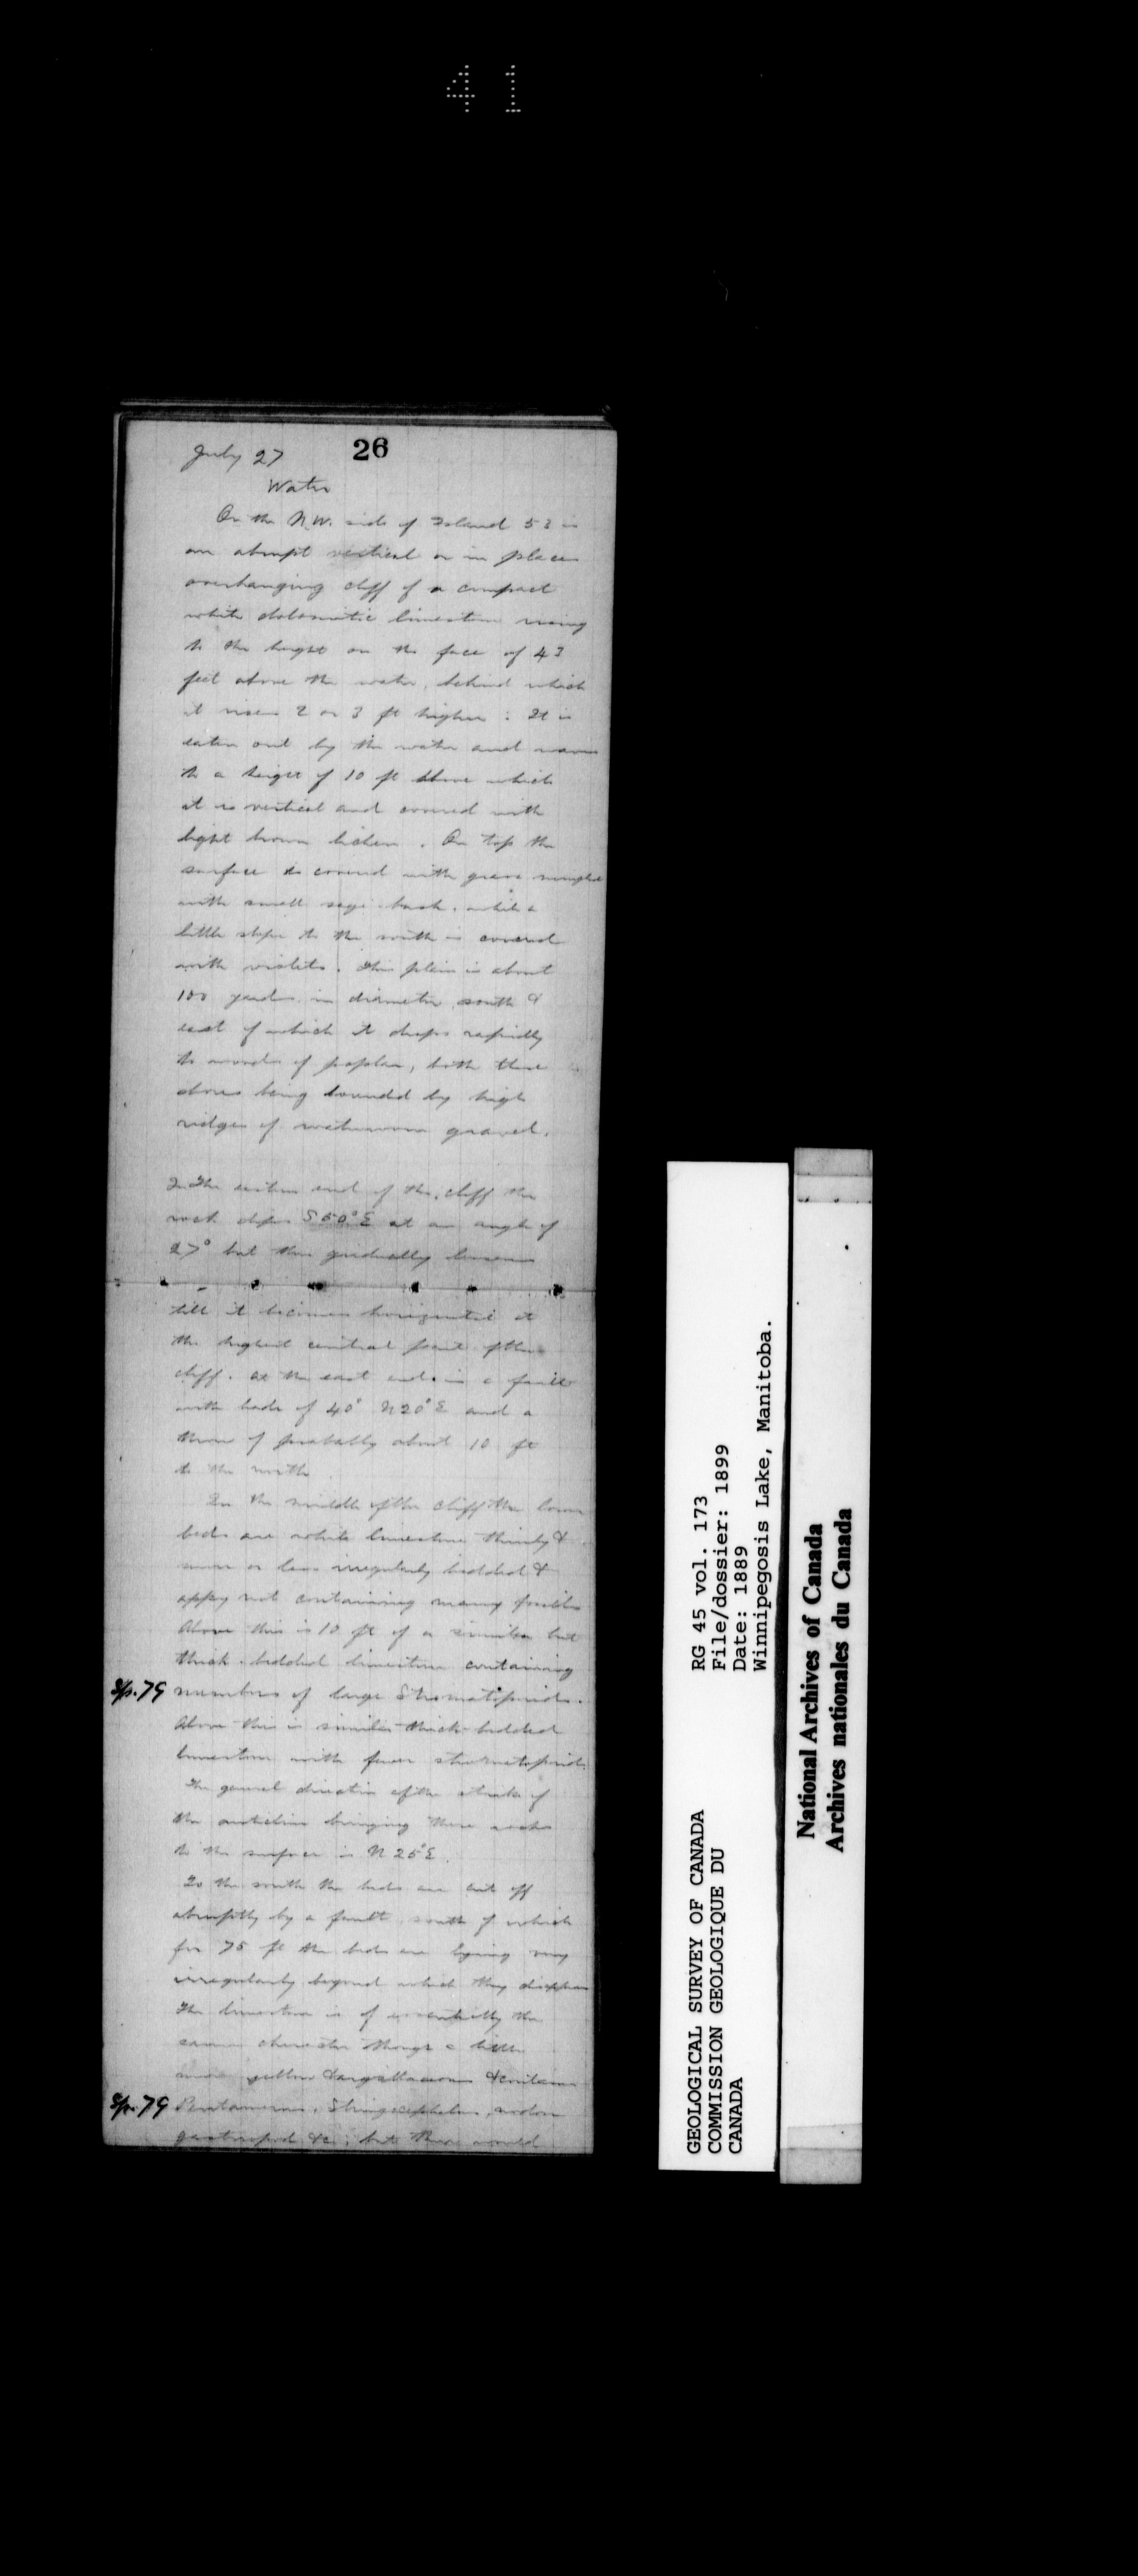 41
26
July 27
Water
On the N.W. side of Island 53 is
an abrupt vertical or in places
overhanging cliff of a compact
white dolomitic limestone rising
to the height on the face of 43
feet above the water, behind which
it rises 2 or 3 ft higher. It is
eaten out by the water and waves
to a height of 10 ft above which
it is vertical and covered with
light brown lichen. On top the
surface is covered with grass mingled
with small sage bush, while a
little slope to the south is covered
with violets. This plain is about
100 yards in diameter, south &
east of which it drops rapidly
to woods of poplar, both these
shores being bounded by high
ridges of waterworn gravel.
In the eastern end of the cliff the
rock dips S50°E at an angle of
27° but this gradually lessens
till it becomes horizontal at
the highest central part of the
cliff. At the east end is a fault
with hade of 40° N20°E and a
throw of probably about 10 ft
to the north.
In the middle of the cliff the lower
beds are white limestone thinly &
more or less irregularly bedded &
appy not containing many fossils
Above this is 10 ft of a similar but
thick-bedded limestone containing
Sp. 79 numbers of large Stromatoporids.
Above this is similar thick-bedded
limestone with fewer stromatoporids.
The general direction of the strike of
the anticline bringing these rocks
to the surface is N25°E.
To the south the beds are cut off
abruptly by a fault, south of which
for 75 ft the beds are lying very
irregularly beyond which they disappear
The limestone is of essentially the
same character though a little
more yellow & argillaceous & contains
Sp. 79 Pentamerus, Stringocephalus,
gasteropod &c, but there would
GEOLOGICAL SURVEY OF CANADA
COMMISSION GEOLOGIQUE DU
CANADA
RG 45 vol. 173
File/dossier: 1899
Date: 1889
Winnipegosis Lake, Manitoba.
National Archives of Canada
Archives nationales du Canada